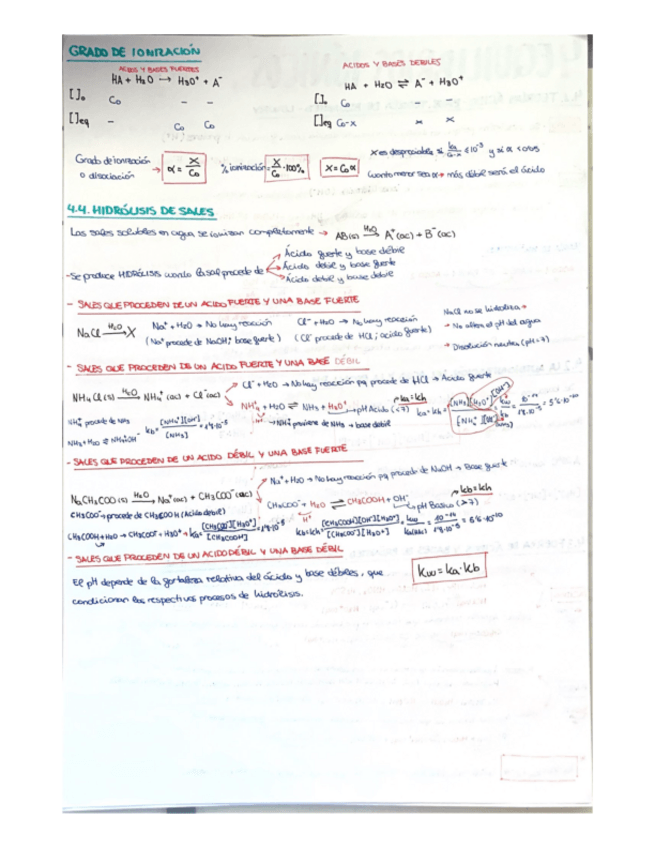 GRADO DE IONIZACIÓN
ACIDOS Y BASES FUERTES
HA + H2O → H3O+ + A-
[ ]o Co - -
[ ]eq - Co Co
ACIDOS Y BASES DEBILES
HA + H2O ⇌ A- + H3O+
[ ]o Co - -
[ ]eq Co-x x x
Grado de ionización o disociación → α = x/Co
% ionización = x/Co · 100%
x = Co α
x es despreciable si
Cuanto menor sea α → más débil será el ácido
4.4. HIDRÓLISIS DE SALES
Las sales solubles en agua se ionizan completamente → AB(s) H2O→ A+(ac) + B-(ac)
-Se produce HIDRÓLISIS cuando la sal procede de
Ácido fuerte y base débil
Ácido debil y base fuerte
Ácido debil y base debil
- SALES QUE PROCEDEN DE UN ACIDO FUERTE Y UNA BASE FUERTE
NaCl H2O→ X
Na+ + H2O → No hay reacción
(Na+ procede de NaOH; base fuerte)
Cl- + H2O → No hay reacción
(Cl- procede de HCl; acido fuerte)
NaCl no se hidroliza →
→ No altera el pH del agua
→ Disolución neutra (pH=7)
- SALES QUE PROCEDEN DE UN ACIDO FUERTE Y UNA BASE DÉBIL
NH4Cl(s) H2O→ NH4+(ac) + Cl-(ac)
Cl- + H2O → No hay reacción pq procede de HCl → Acido fuerte
NH4+ + H2O ⇌ NH3 + H3O+ → pH Acido (<7)
ka=kh
H+
→ NH4+ proviene de NH3 → base debil
NH4+ procede de NH3
- SALES QUE PROCEDEN DE UN ACIDO DÉBIL Y UNA BASE FUERTE
Na+ + H2O → No hay reacción pq procede de NaOH → Base fuerte
NaCH3COO(s) H2O→ Na+(ac) + CH3COO-(ac)
CH3COO- + H2O ⇌ CH3COOH + OH-
kb=kh
→ pH Basico (>7)
H+
CH3COO- → procede de CH3COOH (Acido débil)
CH3COOH + H2O → CH3COO- + H3O+ → ka = [CH3COO-][H3O+]/[CH3COOH] = 1'8·10-5
- SALES QUE PROCEDEN DE UN ACIDO DÉBIL Y UNA BASE DÉBIL
El pH depende de la fortaleza relativa del ácido y base débiles, que
condicionan los respectivos procesos de hidrólisis.
Kw = ka · kb